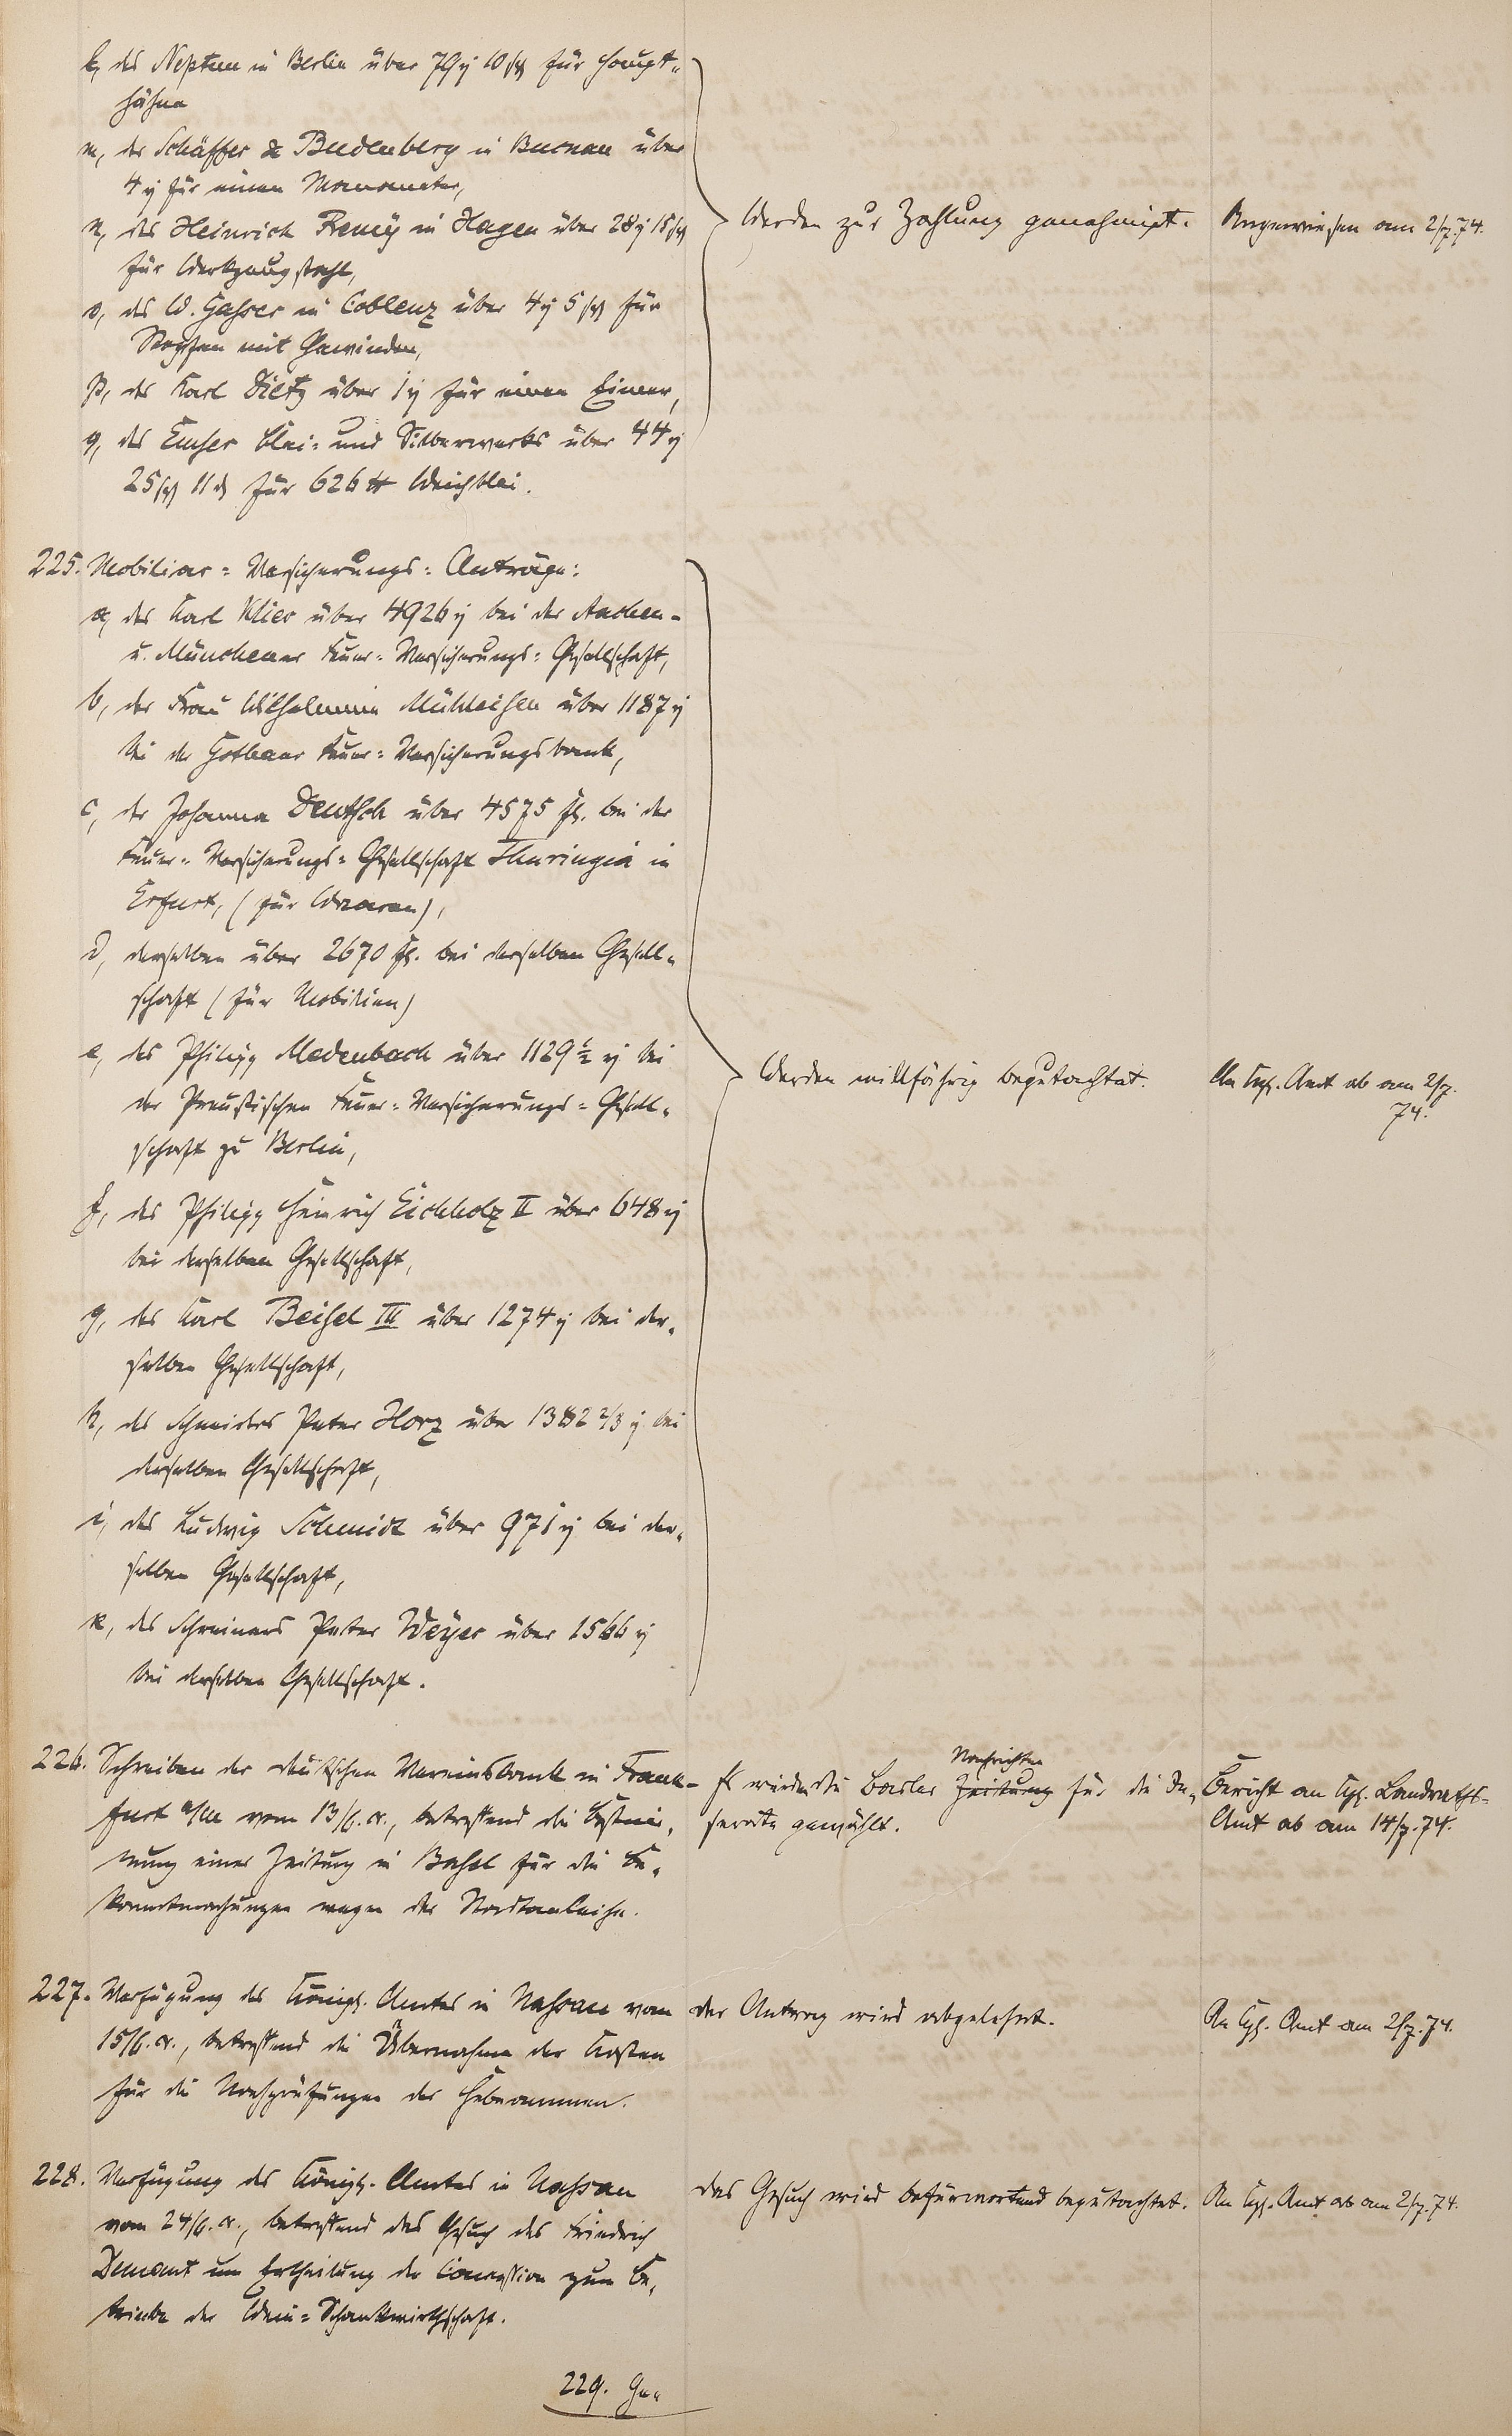 l, des Neptun in Berlin über 79 rℓ 10 sgr für Haupt-
hähne
m, der Schäffer & Budenberg in Buckau über
4 rℓ für einen Manometer,
n, des Heinrich Remy in Hagen über 28 rℓ 15 sgr
für Werkzeugstahl,
o, des W. Gasser in Coblenz über 4 rℓ 5 sgr für
Stopfen mit Gewinden,
p, des Karl Dietz über 1 rℓ für einen Eimer,
q, des Emser Blei- und Silberwerks über 44 rℓ
25 sgr 11 d für 626 ℔ Weichblei.
Werden zur Zahlung genehmigt.
Angewiesen am 2/7.74.
225. Mobiliar-Versicherungs-Anträge:
a, des Karl Klier über 4926 rℓ bei der Aachen-
u. Münchener Feuer-Versicherungs-Gesellschaft,
b, der Frau Wilhelmine Mühleisen über 1187 rℓ
bei der Gothaer Feuer-Versicherungsbank,
c, der Johanna Deutsch über 4575 fl. bei der
Feuer-Versicherungs-Gesellschaft Thuringia in
Erfurt, (für Waaren),
d, derselben über 2670 fl. bei derselben Gesell-
schaft (für Mobilien)
e, des Philipp Medenbach über 1129 ½ rℓ bei
der Preußischen Feuer-Versicherungs-Gesell-
schaft zu Berlin,
f, des Philipp Heinrich Eichholz II über 648 rℓ
bei derselben Gesellschaft,
g, des Karl Beisel III über 1274 rℓ bei der-
selben Gesellschaft,
h, des Schneiders Peter Horz über 1382 2/3 rℓ bei
derselben Gesellschaft,
i, des Ludwig Schmidt über 971 rℓ bei der-
selben Gesellschaft,
k, des Schreiners Peter Weyer über 1566 rℓ
bei derselben Gesellschaft.
Werden willfährig begutachtet.
An Kgl. Amt ab am 2/7.
74.
226. Schreiben der deutschen Vereinsbank in Frank-
furt a/M vom 13/6. cr., betreffend die Bestim-
mung einer Zeitung in Basel für die Be-
kanntmachungen wegen der Stadtanleihe.
Es werden die Basler Zeitung Nachrichten für die In-
serate gewählt.
Bericht an Kgl. Landraths-
Amt ab am 14/7.74.
227. Verfügung des Königl. Amtes in Nassau vom
15/6. cr., betreffend die Übernahme der Kosten
für die Nachprüfungen der Hebeammen.
Der Antrag wird abgelehnt.
An Kgl. Amt am 2/7.74.
228. Verfügung des Königl. Amtes in Nassau
vom 24/6. cr., betreffend das Gesuch des Friedrich
Demant um Ertheilung der Concession zum Be-
triebe der Wein-Schankwirthschaft.
Das Gesuch wird befürwortend begutachtet.
An Kgl. Amt ab am 2/7.74.
229. Ge-